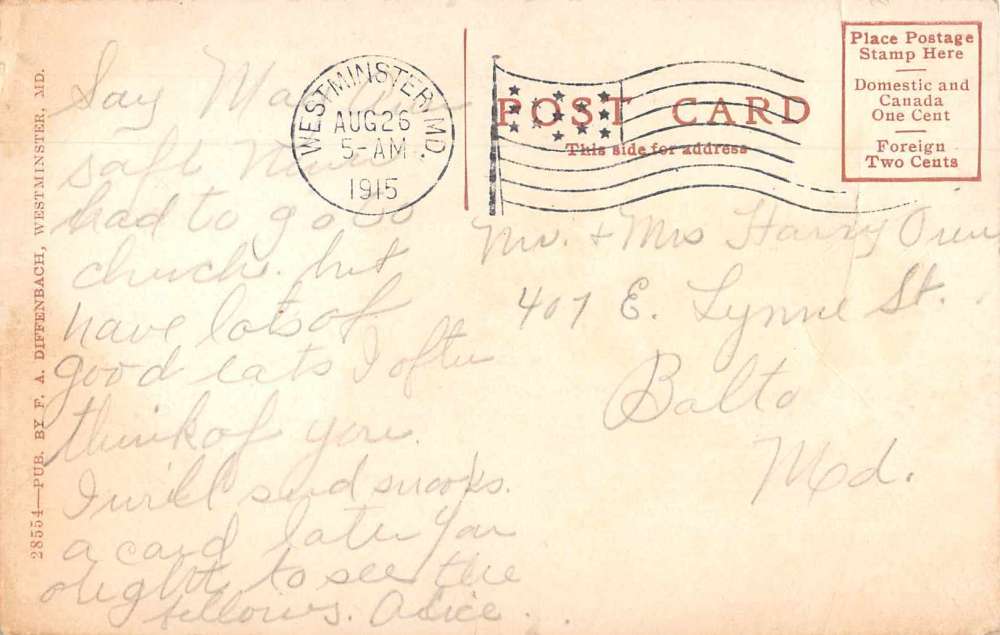 28554—PUB. BY F. A. DIFFENBACH, WESTMINSTER, MD.
Say Ma
safe
had to go to
church. but
have lots of
good eats I often
think of you.
I will send snooks.
a card later you
ought to see the
fellows. Alice.
WESTMINSTER, MD.
AUG 26
5-AM
1915
POST CARD
This side for address
Place Postage
Stamp Here
Domestic and
Canada
One Cent
Foreign
Two Cents
Mr. + Mrs Harry
407 E. Lynne St.
Balto
Md.